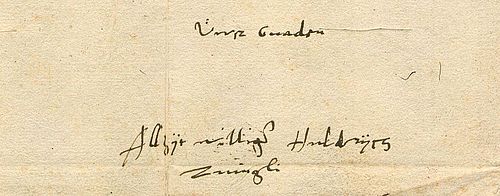 Üwer Gnaden
Allzyt williger Huldrych
Zuingli